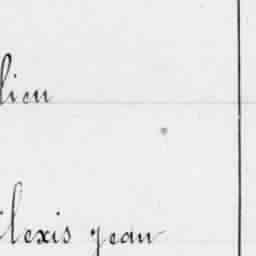 lien
ilexis jean